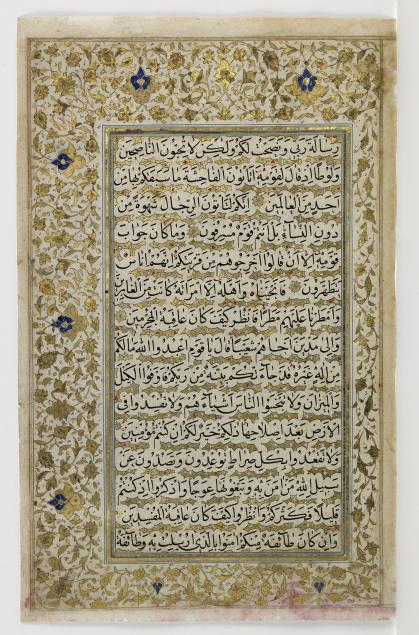 رسالة ربي ونصحت لكم ولكن لا تحبون الناصحين
ولوطا اذ قال لقومه اتاتون الفاحشة ما سبقكم بها من
احد من العالمين انكم لتاتون الرجال شهوة من
دون النساء بل انتم قوم مسرفون وما كان جواب
قومه الا ان قالوا اخرجوهم من قريتكم انهم اناس
يتطهرون فانجيناه واهله الا امراته كانت من الغابرين
وامطرنا عليهم مطرا فانظر كيف كان عاقبة المجرمين
والى مدين اخاهم شعيبا قال يا قوم اعبدوا الله ما لكم
من اله غيره قد جاءتكم بينة من ربكم فاوفوا الكيل
والميزان ولا تبخسوا الناس اشياءهم ولا تفسدوا في
الارض بعد اصلاحها ذلكم خير لكم ان كنتم مؤمنين
ولا تقعدوا بكل صراط توعدون وتصدون عن
سبيل الله من امن به وتبغونها عوجا واذكروا اذ كنتم
قليلا فكثركم وانظروا كيف كان عاقبة المفسدين
وان كان طائفة منكم امنوا بالذي ارسلت به وطائفة